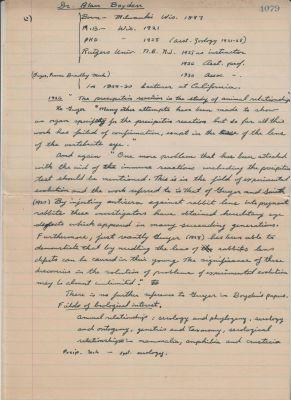 Dr. Alan Boyden
1079
c) Born - Milwaukee Wis. 1897
B.A. - Wis. 1921
PhD - 1925 (Asst. Zoology 1921-25)
Rutgers Univ N.B. N.J. 1925 as instructor
1926 Asst. prof.
1930 Assoc. -
in 1929-30 lecturer at California
1926 - The precipitin reaction in the study of animal relationships
to Guyer "Many other attempts have been made to show
an organ specificity for the precipitin reaction but so far all this
work has failed of confirmation, except in the case of the lens
of the vertebrate eye."
And again "One more problem that has been attacked
with the aid of the immune reactions including the precipitin
test should be mentioned. This is in the field of experimental
evolution and the work referred to is that of Guyer and Smith
(1920) By injecting antisera against rabbit lens into pregnant
rabbits these investigators have obtained hereditary eye
defects which appeared in many succeeding generations.
Furthermore, just recently Guyer (1925) has been able to
demonstrate that by needling the lens of the rabbits lens
defects can be caused in their young. The significance of these
discoveries in the solution of problems of experimental evolution
may be almost unlimited."
There is no further reference to Guyer in Boyden's papers.
Fields of biological interest.
Animal relationship: serology and phylogeny, serology
and ontogeny, genetics and taxonomy, serological
relationships in mammalia, amphibia and crustacea
Precip. tech - syst. serology.